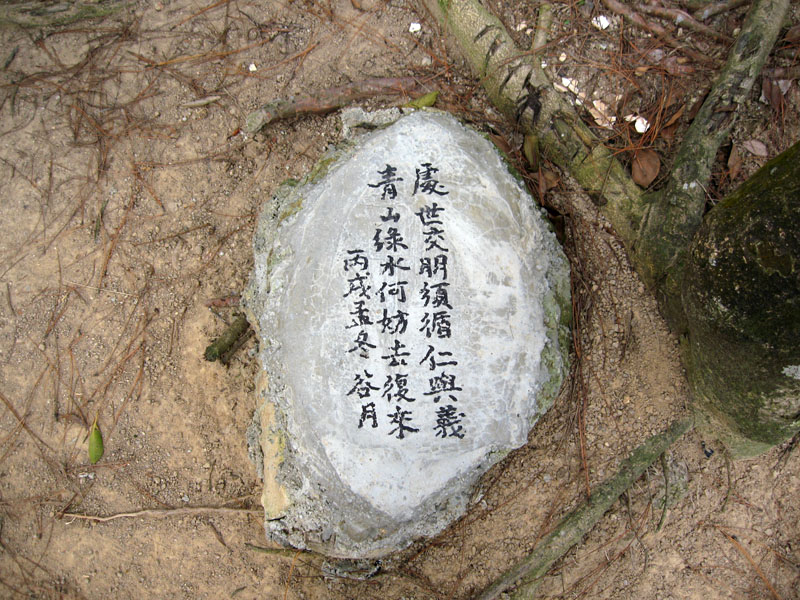 處世交朋須循仁與義
青山綠水何妨去復來
丙戌孟冬 谷月